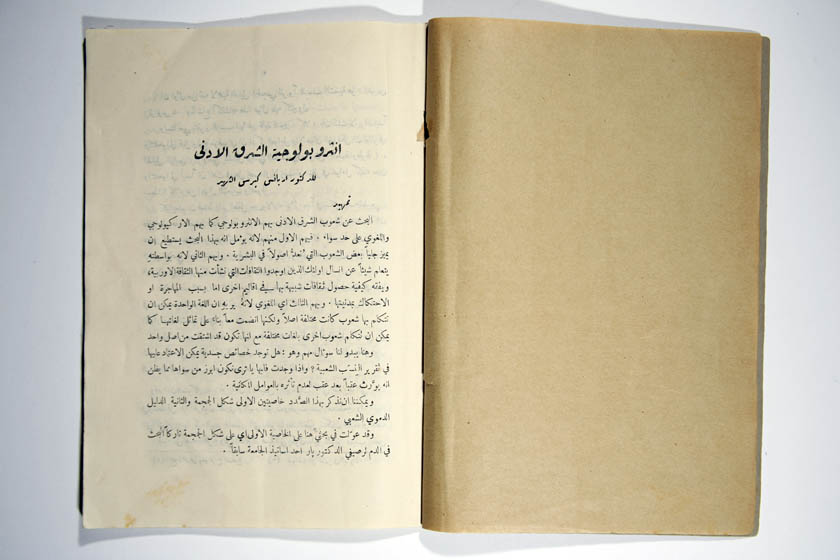 انثروبولوجية الشرق الادنى
للدكتور اربانس كبرس الشهير
تمهيد
البحث عن شعوب الشرق الادنى يهم الانثروبولوجي كما يهم الاركيولوجي
واللغوي على حد سواء . فيهم الاول منهم لانه يؤمل انه بهذا البحث يستطيع ان
يميز جلياً بعض الشعوب التي تعدّ اصولاً في البشرية . ويهم الثاني لانه بواسطته
يتعلم شيئاً عن انسال اولئك الذين اوجدوا الثقافات التي نشأت منها الثقافة الاوربية،
ويفقه كيفية حصول ثقافات شبيهة بها في اقاليم اخرى اما بسبب المهاجرة او
الاحتكاك بمدنيتها . ويهم الثالث اي اللغوي لانه يريه ان اللغة الواحدة يمكن ان
تتكلم بها شعوب كانت مختلفة اصلاً ولكنها انضمت معاً بناءً على تماثل لغاتها كما
يمكن ان تتكلم شعوب اخرى بلغات مختلفة مع انها تكون قد اشتقت من اصل واحد
وهنا يبدو لنا سؤال مهم وهو : هل توجد خصائص جسدية يمكن الاعتماد عليها
في تقرير النِسَب الشعبية ؟ واذا وجدت فايها يا ترى تكون ابرز من سواها مما يظن
انه يورَّث عقباً بعد عقب لعدم تأثره بالعوامل المكانية .
ويمكننا ان نذكر بهذا الصَّدد خاصيتين الاولى شكل الجمجمة والثانية الدليل
الدموي الشعبي .
وقد عوّلت في بحثي هنا على الخاصية الاولى اي على شكل الجمجمة تاركاً البحث
في الدم لرصيفي الدكتور پار احد اساتيذ الجامعة سابقاً .